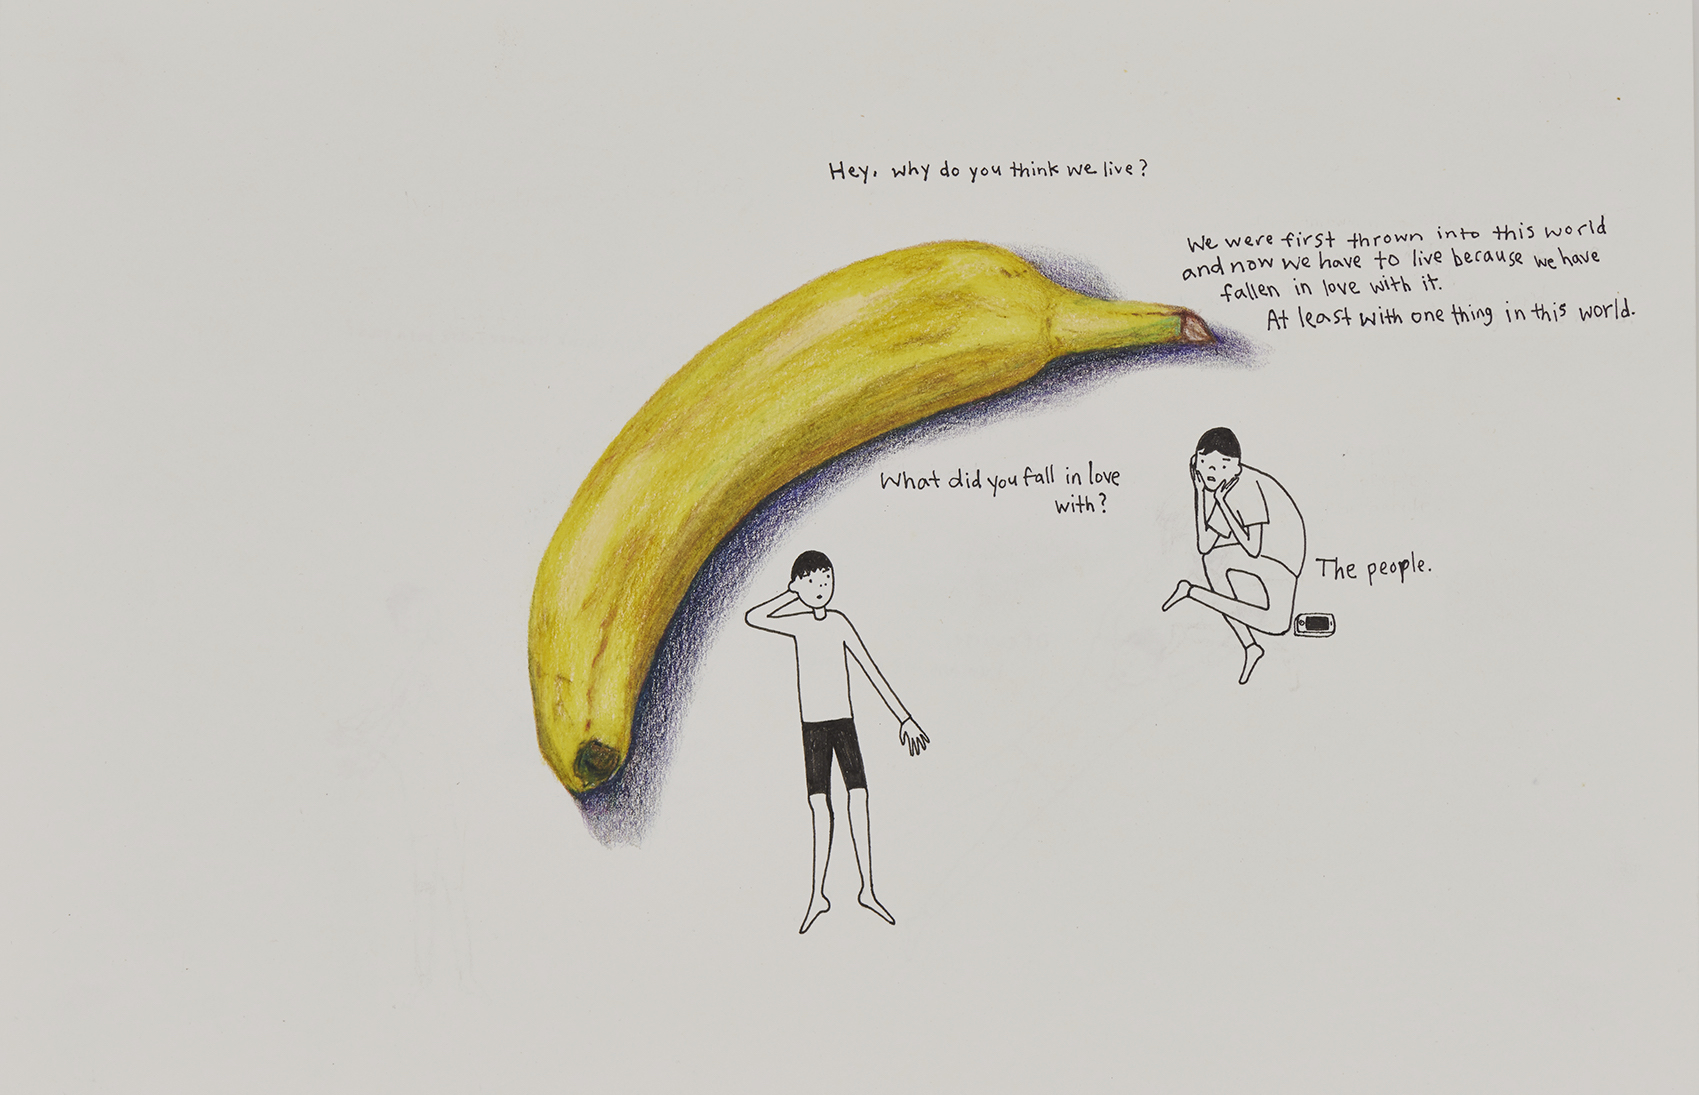 Hey, why do you think we live?
We were first thrown into this world
and now we have to live because we have
fallen in love with it.
At least with one thing in this world.
What did you fall in love
with?
The people.